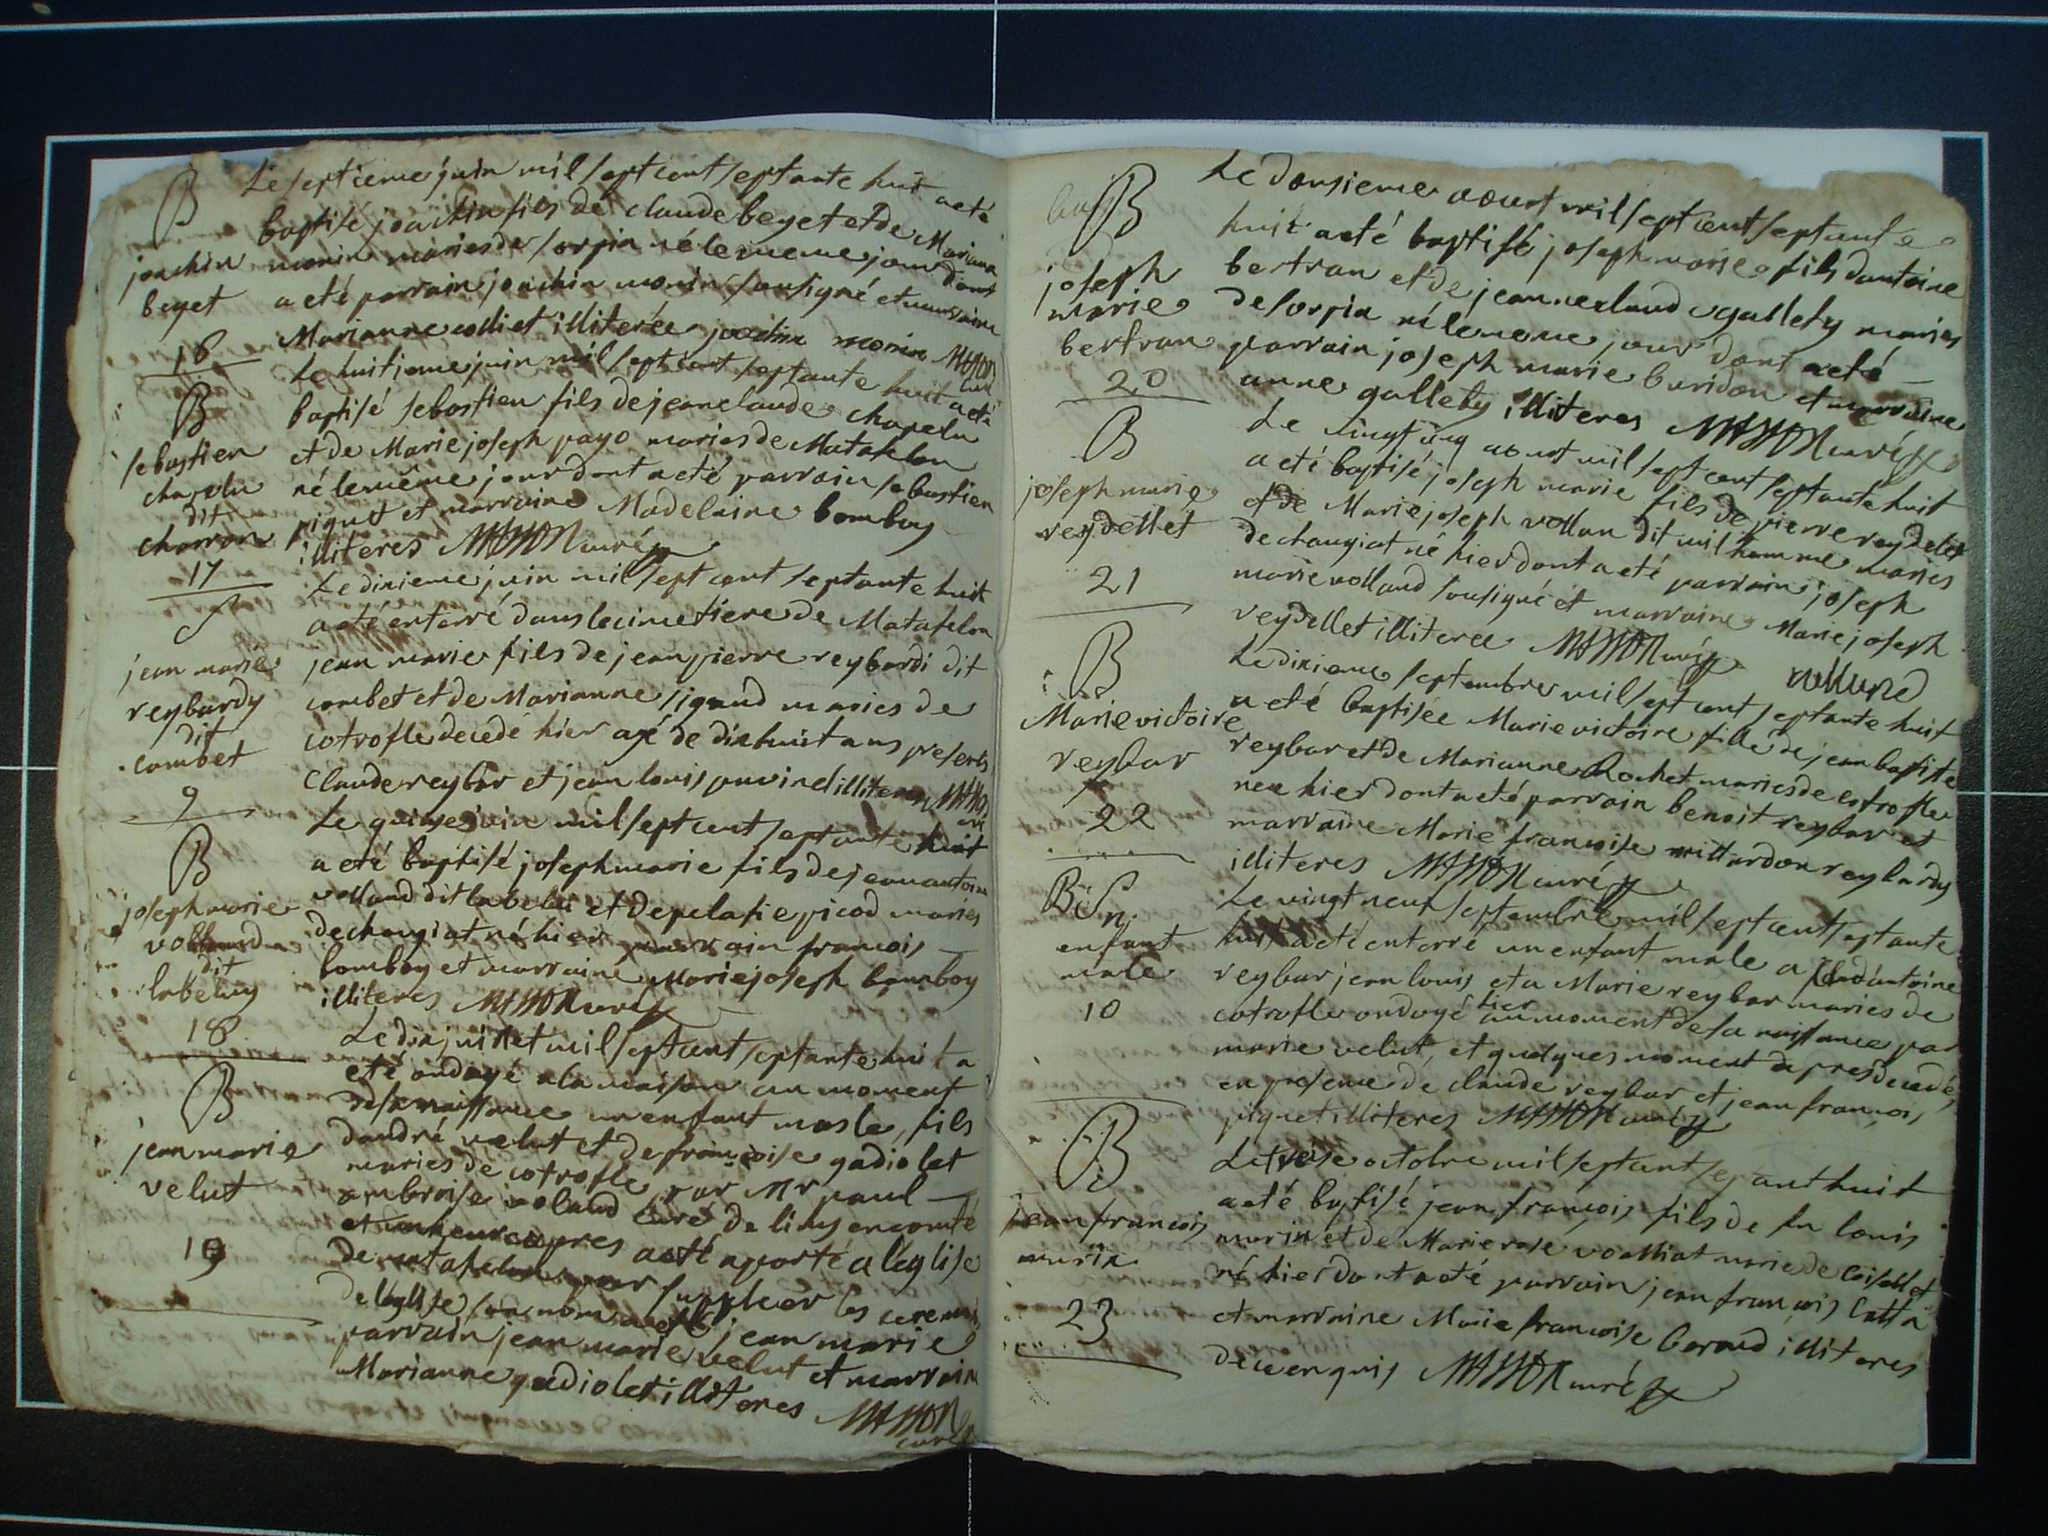 B
joachin
beget
16
Le septieme juin mil sept cent septante huit a eté
baptisé joachin fils de claude beget et de Mariana
monin maries de sorpia né le meme jour dont
a eté parrain joachin monin sousigné et marraine
Marianne collet illiterée joachin monin MASSON
curé
B
sebastien
chapelu
dit
charron
17
Le huitieme juin mil sept cent septante huit a eté
baptisé sebastien fils de jean claude chapelu
et de Marie joseph payo maries de Matafelon
né le même jour dont a eté parrain sebastien
piquet et marraine Madelaine bomboy
illiteres MASSON curé
S
jean marie
reybardy
dit
combet
9
Le dixieme juin mil sept cent septante huit
a eté enterré dans le cimetiere de Matafelon
jean marie fils de jean pierre reybardi dit
combet et de Marianne sigaud maries de
cotrofle decedé hier agé de dixhuit ans presents
Claude reybar et jean louis illiteres MASSON
B
joseph marie
volland
dit
labeluy
18
Le quinze juin mil sept cent septante huit
a eté baptisé joseph marie fils de jean antoine
volland dit labelui et de pelasie picod maries
de changiat né hier parrain francois
bomboy et marraine Marie joseph bomboy
illiteres MASSON curé
B
jean marie
velut
19
Le dix juillet mil sept cent septante huit a
eté ondoyé a la maison au moment
de sa naissance un enfant masle, fils
dandré velut et de françoise gadiolet
maries de cotrofle par Mr paul
ambroise voland curé de lidy en comté
et une heure apres a eté aporté a léglise
de matafelon pour supleer les ceremonies
de léglise son nom a eté jean marie
parrain jean marie velut et marraine
Marianne gadiolet illiteres MASSON
curé
B
joseph
marie
bertran
20
Le dousieme aoust mil sept cent septante
huit a eté baptisé joseph marie fils dantoine
bertran et de jeanne claud gallety maries
de sorpia né le meme jour dont a eté
parrain joseph marie buridon et marraine
anne gallety illiteres MASSON curé
B
joseph marie
reydellet
21
Le vingt cinq aoust mil sept cent septante huit
a eté baptisé joseph marie fils de pierre reydelet
et de Marie joseph vollan dit milhomme maries
de changiat né hier dont a eté parrain joseph
marie volland sousigné et marraine Marie joseph
reydellet illiteree MASSON curé volland
B
Marie victoire
reybar
22
Le dixieme septembre mil sept cent septante huit
a eté baptisée Marie victoire fille de jean baptiste
reybar et de Marianne Rochet maries de cotrofle
nee hier dont a eté parrain benoit reybar et
marraine Marie francoise reybardy
illiteres MASSON curé
B S
enfant
male
10
Le vingt neuf septembre mil sept cent septante
huit a eté enterré un enfant male a antoine
reybar jean louis et a Marie reybar maries de
cotrofle ondoyé hier au moment de sa naissance par
marie velut, et quelques moment apres decedé,
en presence de claude reybar et jean francois
piquet illiteres MASSON curé
B
jean françois
morin
23
Le treise octobre mil sept cent septant huit
a eté baptisé jean françois fils de fu louis
morin et de Marie rose voalliat maries de
né hier dont a eté parrain jean françois
et marraine Marie francoise baraud illiteres
de ce enquis MASSON curé